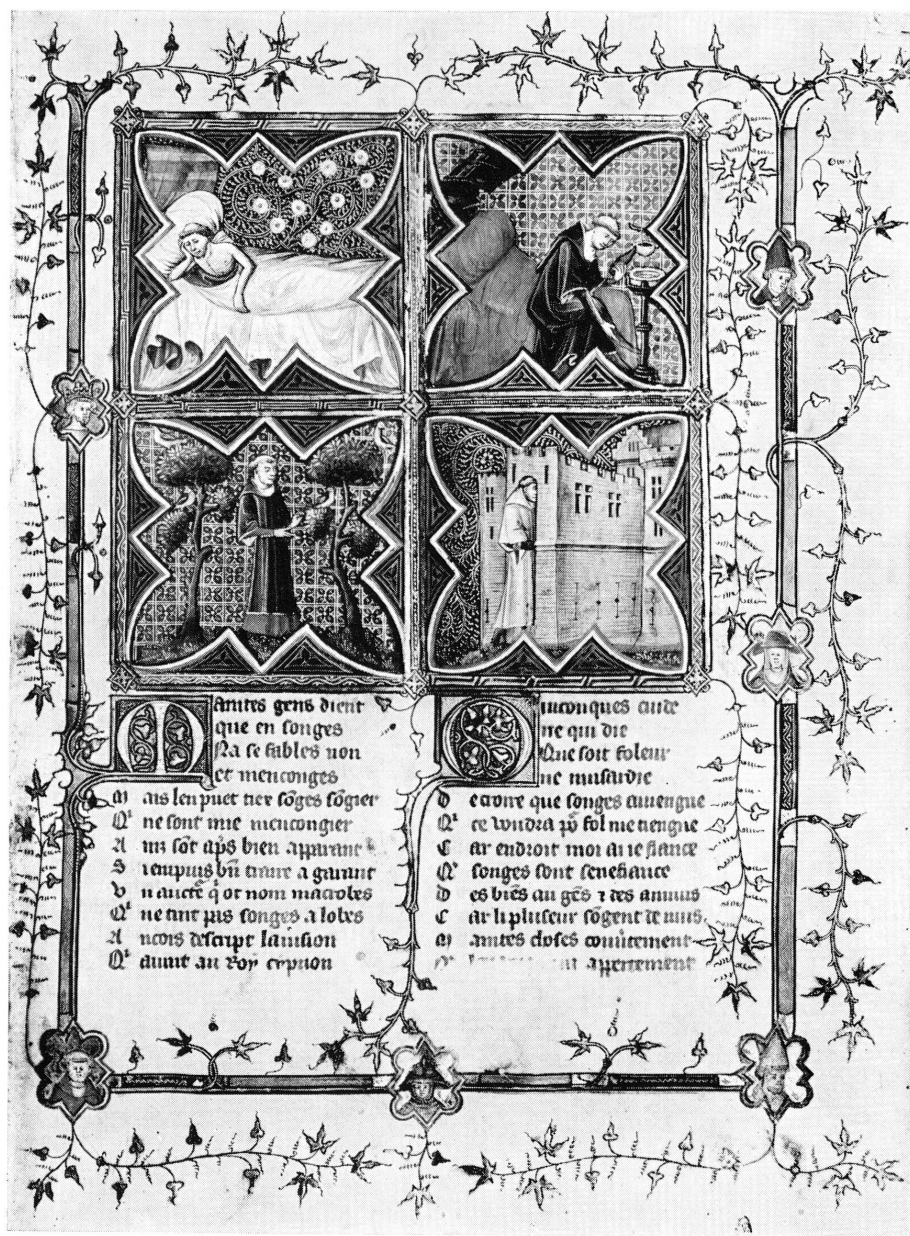 Maintes gens dient
que en songes
Na se fables non
et menconges
M ais len puet tier sōges sōgier
Qͥ ne sont mie mencongier
A ins sōt ap̄s bien apparant
S i en puis bn̄ traire a garant
V n aucte q̄ ot nom macrobes
Qͥ ne tint pas songes a lobes
A ncois descript lauision
Qͥ auint au Roy cypion
Quiconques cuide
ne qui die
Que soit foleur
ne musardie
D e croire que songes auiengne
Qͥ ce voudra po͛ fol me tiengne
C ar endroit moi ai ie fiance
Qͥ songes sont senefiance
D es biēs au gēs ⁊ des anuius
C ar li pluseur sōgent de nuis
M aintes choses couūtement
appertement